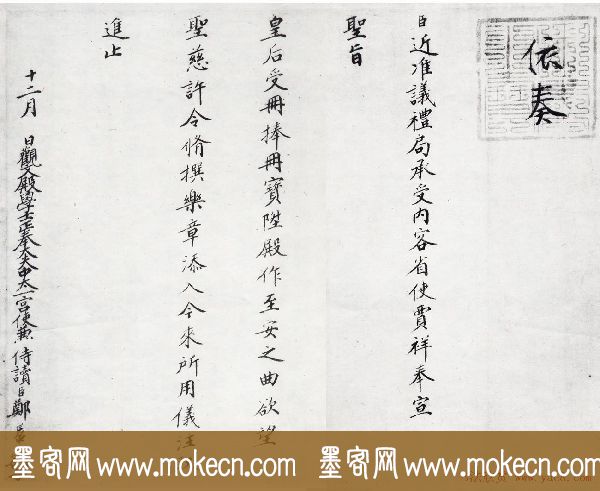 依奏
臣近准議禮局承受内容省使賈祥奉宣
聖旨
皇后受冊捧冊寶陞殿作至安之曲欲望
聖慈許令脩撰樂章添入今來所用儀注
進止
十二月 日觀文殿學士正奉大夫中太一宮使兼 侍讀臣鄭居
墨客网 www.mokecn.com 墨客网 www.mokecn.com